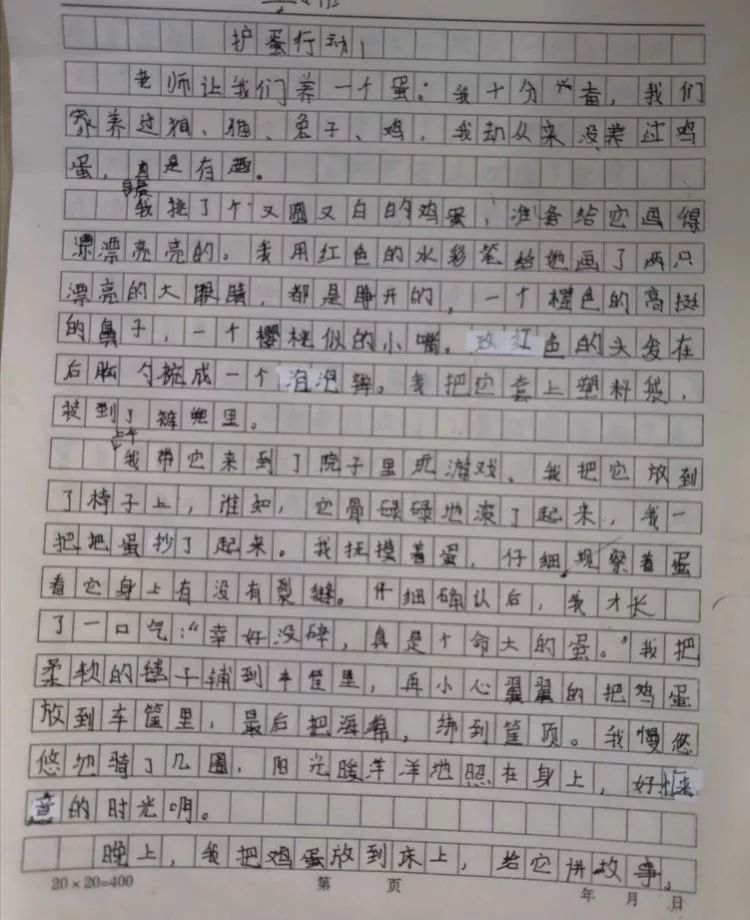 护蛋行动！
老师让我们养一个蛋。我十分兴奋，我们
家养过狗、猫、兔子、鸡，我却从来没养过鸡
蛋，真是有趣。
早晨
我挑了个又圆又白的鸡蛋，准备给它画得
漂漂亮亮的。我用红色的水彩笔给她画了两只
漂亮的大眼睛，都是睁开的，一个橙色的高挺
的鼻子，一个樱桃似的小嘴。玫红色的头发在
后脑勺梳成一个泡泡辫。我把它套上塑料袋，
装到了裤兜里。
上午
我带它来到了院子里玩游戏。我把它放到
了椅子上，谁知，它骨碌碌地滚了起来，我一
把把蛋抄了起来。我抚摸着蛋，仔细观察着蛋
看它身上有没有裂缝。仔细确认后，我才长
了一口气：“幸好没碎，真是个命大的蛋。”我把
柔软的毯子铺到车筐里，再小心翼翼的把鸡蛋
放到车筐里，最后把海绵，绑到筐顶。我慢悠
悠地骑了几圈，阳光暖洋洋地照在身上，好惬
意的时光啊。
晚上，我把鸡蛋放到床上，给它讲故事，
20×20=400 第 页 年 月 日